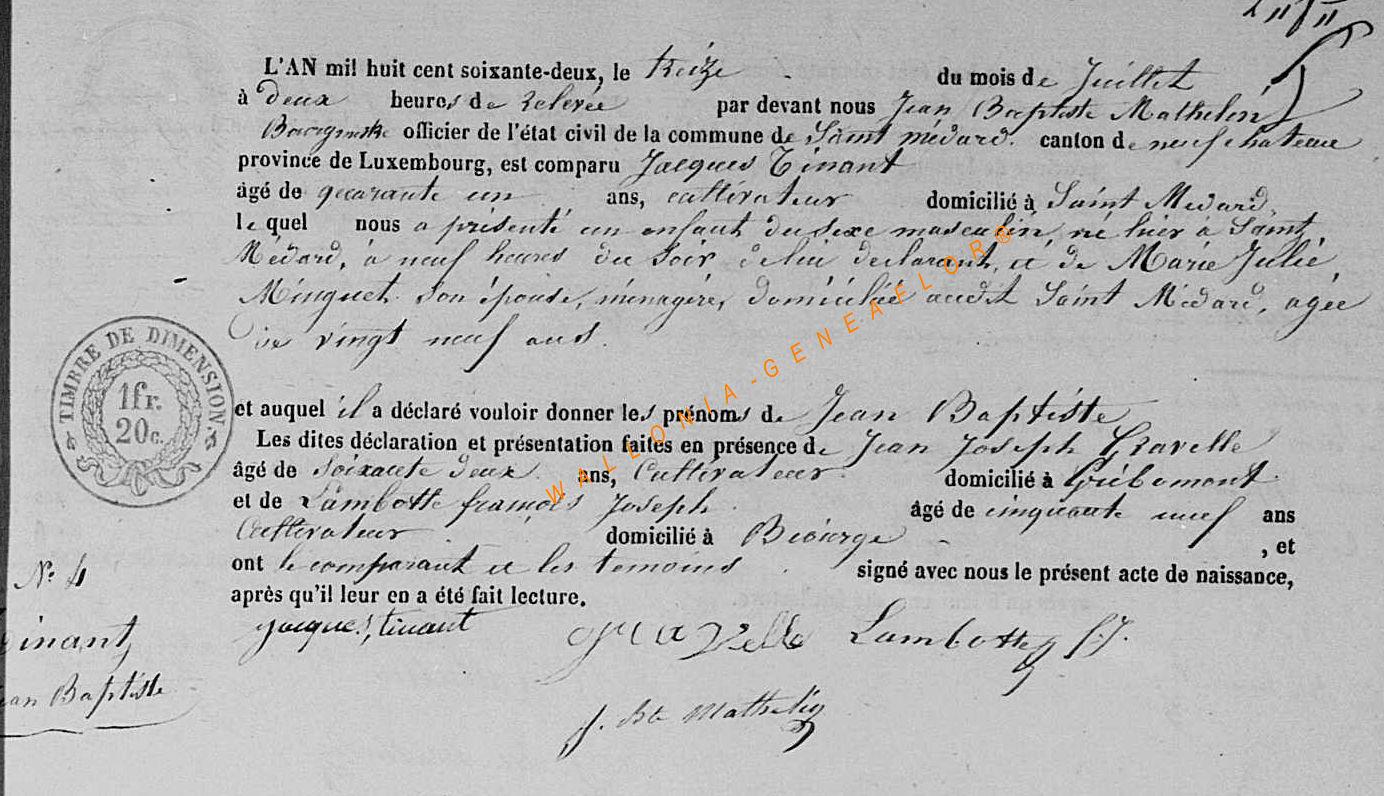 L'AN mil huit cent soixante-deux, le treize du mois de Juillet
à deux heures de relevée par devant nous Jean Baptiste Mathelin
Bourgmestre officier de l'état civil de la commune de Saint médard. canton de neufchateau
province de Luxembourg, est comparu Jacques Tinant
âgé de quarante un ans, cultivateur domicilié à Saint Médard,
le quel nous a présenté un enfant du sexe masculin, né hier à Saint
Médard, à neuf heures du soir de lui déclarant, et de Marie Julie
Minguet son épouse, ménagère, domiciliée audit Saint Médard, agée
de vingt neuf ans.
et auquel il a déclaré vouloir donner les prénoms de Jean Baptiste
Les dites déclaration et présentation faites en présence de Jean Joseph Gravelle
âgé de soixante deux ans, Cultivateur domicilié à Gribomont
et de Lambotte françois Joseph âgé de cinquante neuf ans
Cultivateur domicilié à Biourge , et
ont le comparant et les témoins signé avec nous le présent acte de naissance,
après qu'il leur en a été fait lecture.
jacques, tinant gravelle Lambotte f. J.
J. Bte Mathelin
TIMBRE DE DIMENSION
1 fr.
20 c.
N° 4
Tinant
Jean Baptiste
WALLONIA-GENEAFLOR®